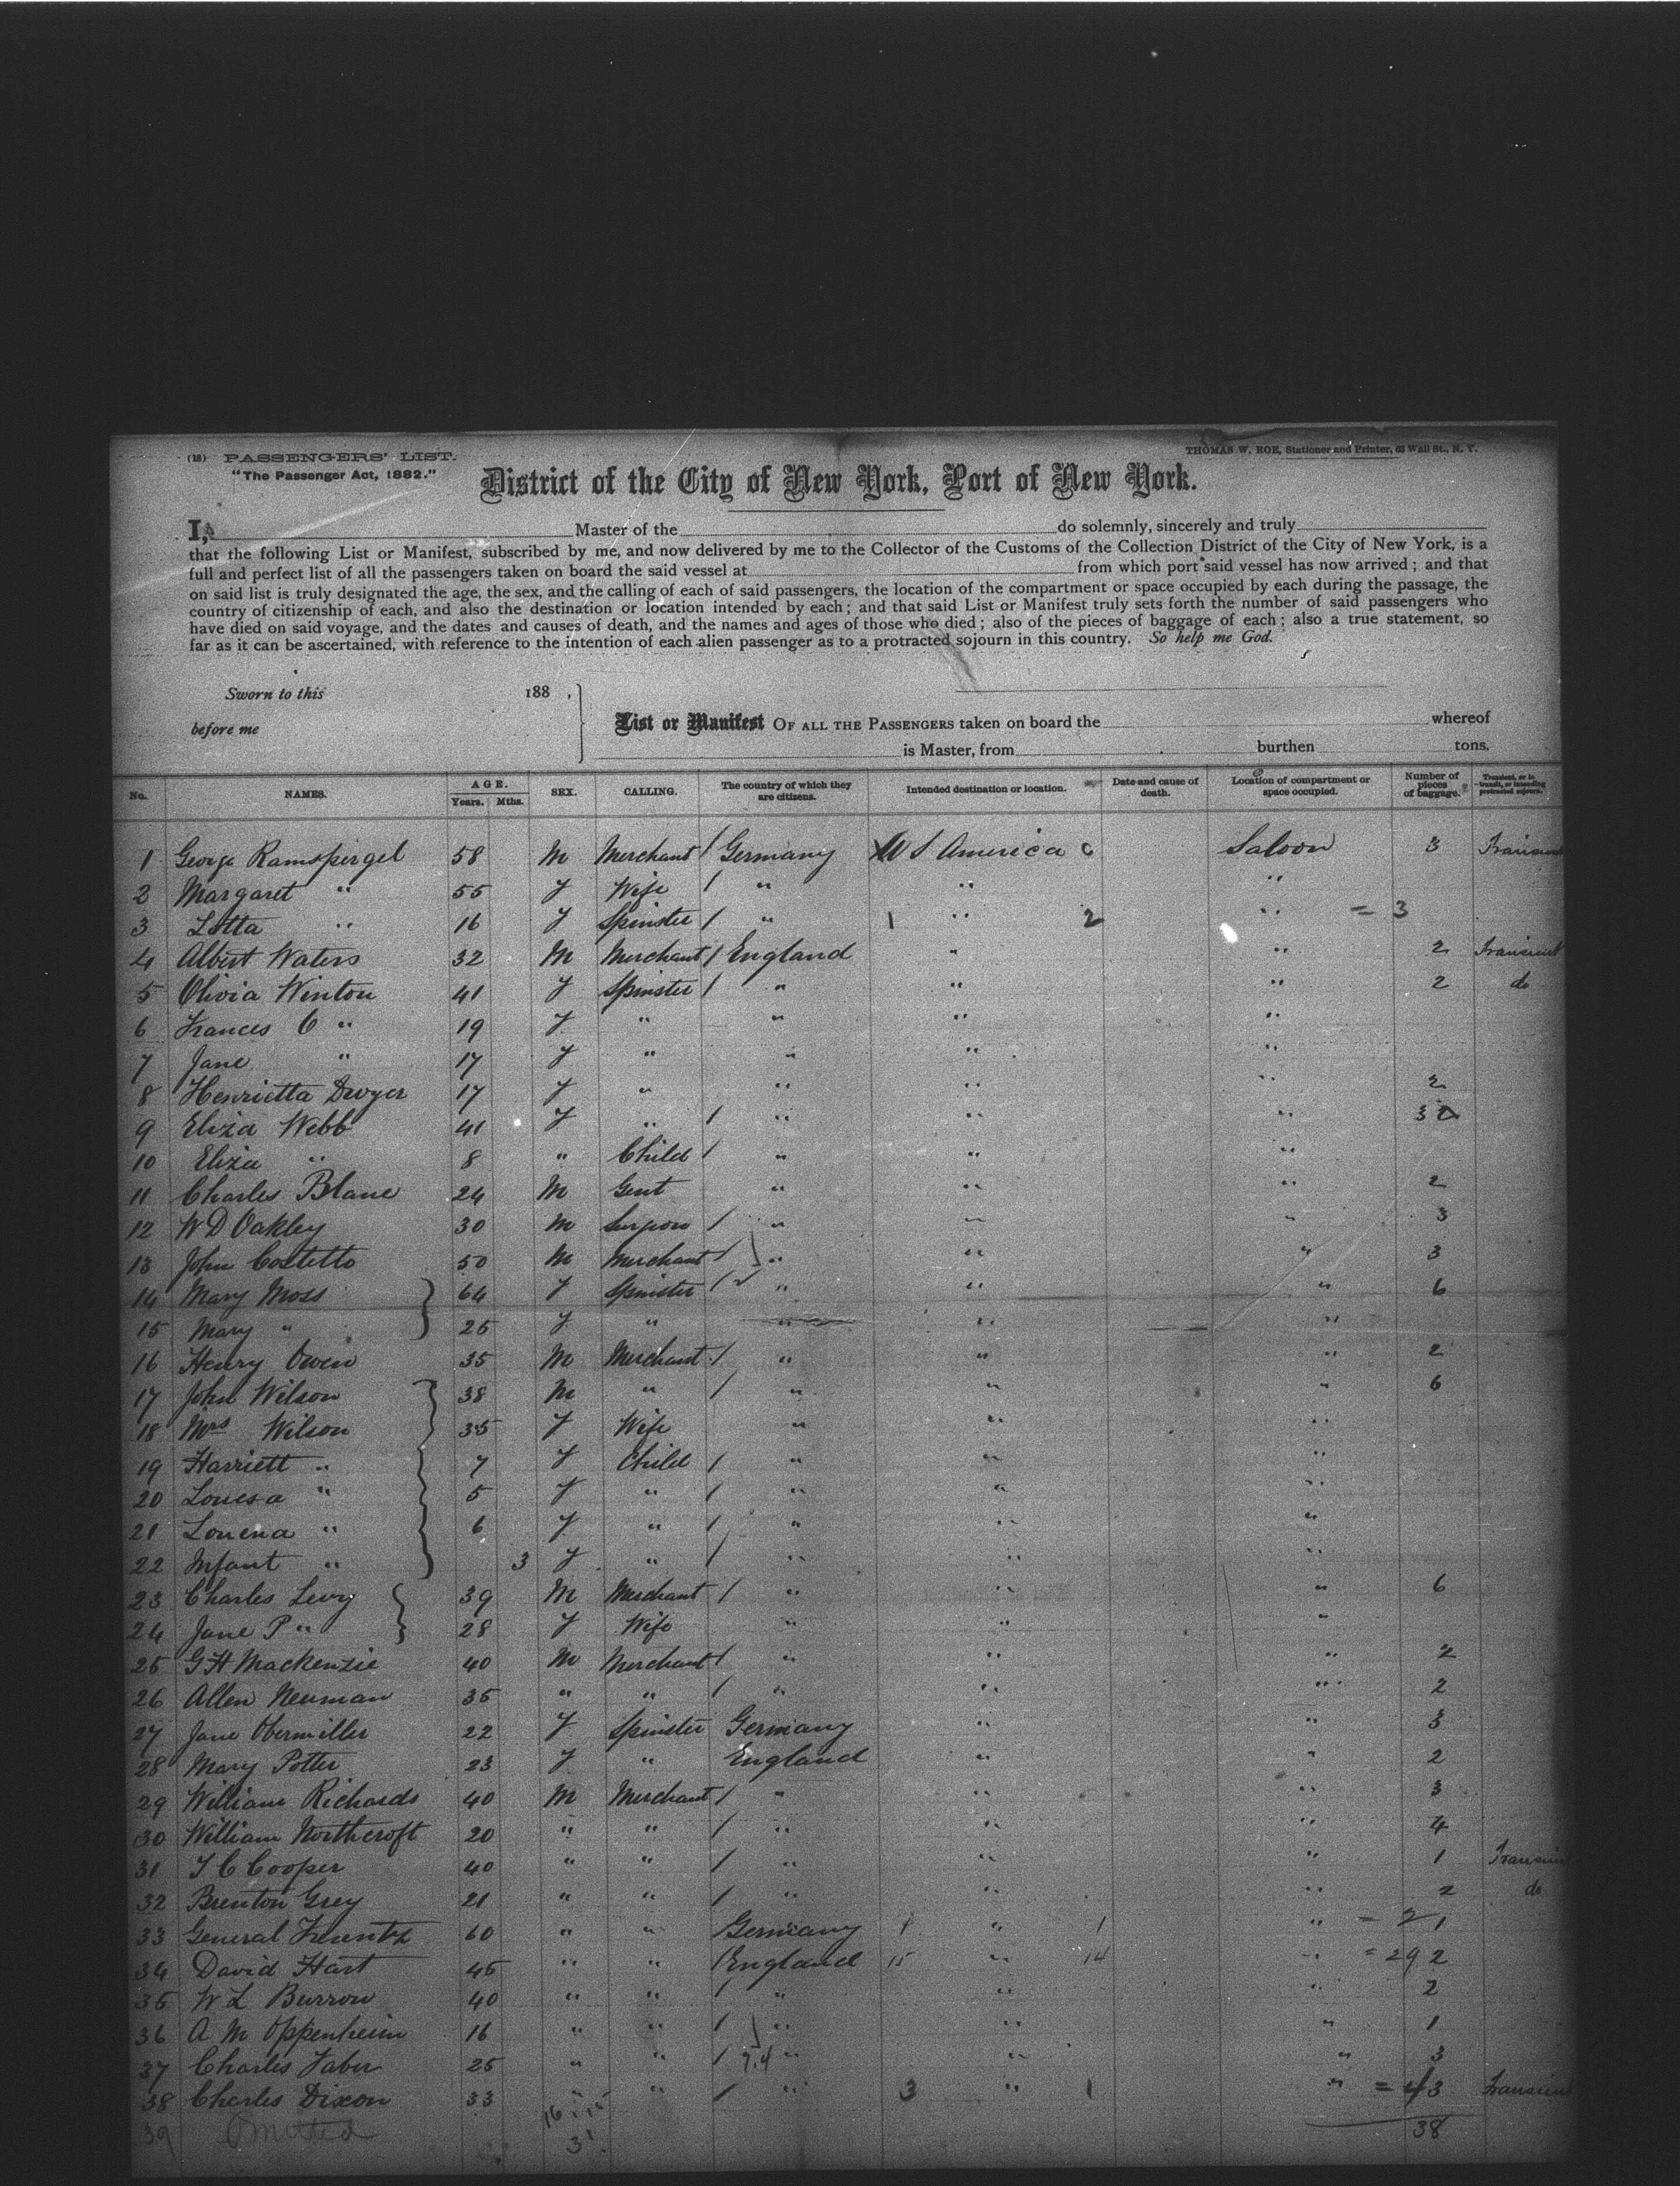 (18) PASSENGERS' LIST.
THOMAS W. ROE, Stationer and Printer, 63 Wall St., N. Y.
"The Passenger Act, 1882."
District of the City of New York, Port of New York.
I, Master of the do solemnly, sincerely and truly
that the following List or Manifest, subscribed by me, and now delivered by me to the Collector of the Customs of the Collection District of the City of New York, is a
full and perfect list of all the passengers taken on board the said vessel at from which port said vessel has now arrived; and that
on said list is truly designated the age, the sex, and the calling of each of said passengers, the location of the compartment or space occupied by each during the passage, the
country of citizenship of each, and also the destination or location intended by each; and that said List or Manifest truly sets forth the number of said passengers who
have died on said voyage, and the dates and causes of death, and the names and ages of those who died; also of the pieces of baggage of each; also a true statement, so
far as it can be ascertained, with reference to the intention of each alien passenger as to a protracted sojourn in this country. So help me God.
Sworn to this 188 ,
before me
List or Manifest OF ALL THE PASSENGERS taken on board the whereof
is Master, from burthen tons.
No. NAMES. AGE. Years. Mths. SEX. CALLING. The country of which they are citizens. Intended destination or location. Date and cause of death. Location of compartment or space occupied. Number of pieces of baggage. Transient, or in transit, or intending protracted sojourn.
1 George Ramspergel 58 M Merchant / Germany U S America Saloon 3 Transient
2 Margaret " 55 F Wife / " " "
3 Lotta " 16 F Spinster / " 1 " 2 " = 3
4 Albert Waters 32 M Merchant / England " " 2 Transient
5 Olivia Winton 41 F Spinster / " " " 2 do
6 Frances C " 19 F " " " "
7 Jane " 17 F " " " "
8 Henrietta Dwyer 17 F " " " " 2
9 Eliza Webb 41 F " / " " " 3
10 Eliza " 8 " Child / " " "
11 Charles Blane 24 M Gent " " " 2
12 W D Oakley 30 M Surgeon / " " " 3
13 John Costello 50 M Merchant / " " " 3
14 Mary Moss 64 F Spinster / " " " 6
15 Mary " 25 F " " " "
16 Henry Owen 35 M Merchant / " " " 2
17 John Wilson 38 M " / " " " 6
18 Mrs Wilson 35 F Wife " " "
19 Harriett " 7 F Child / " " "
20 Louesa " 5 F " / " " "
21 Louena " 6 F " / " " "
22 Infant " 3 F " / " " "
23 Charles Levy 39 M Merchant / " " " 6
24 Jane P " 28 F Wife " " "
25 G H Mackenzie 40 M Merchant / " " " 2
26 Allen Neuman 35 " " / " " " 2
27 Jane Obermiller 22 F Spinster Germany " " 3
28 Mary Potter 23 F " England " " 2
29 William Richards 40 M Merchant / " " " 3
30 William Northcroft 20 " " / " " " 4
31 T C Cooper 40 " " / " " " 1 Transient
32 Brenton Grey 21 " " / " " " 2 do
33 General 60 " " Germany 1 " 1 " = 2 1
34 David Hart 45 " " / England 15 " 14 " = 29 2
35 W L Burrow 40 " " / " " " 2
36 A M Oppenheim 16 " " / " " " 1
37 Charles Faber 25 " " / " " " 3
38 Charles Dixon 33 " " / " 3 " 1 " = 4 3 Transient
39 Omitted 38